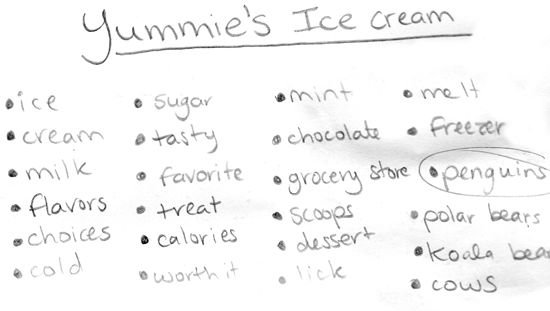 Yummie's Ice cream
• ice
• cream
• milk
• flavors
• choices
• cold
• sugar
• tasty
• favorite
• treat
• calories
• worth it
• mint
• chocolate
• grocery store
• scoops
• dessert
• lick
• melt
• freezer
• penguins
• polar bears
• koala bea
• cows